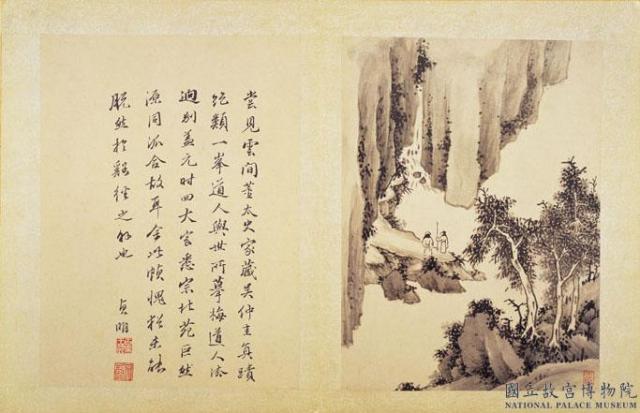 嘗見雲間董太史家藏吳仲圭真蹟
絕類一峯道人與世所摹梅道人法
迥別蓋元時四大家悉宗北苑巨然
源同派合故耳余此幀愧猶未能
脫然於谿徑之外也
貞
國立故宮博物院
NATIONAL PALACE MUSEUM